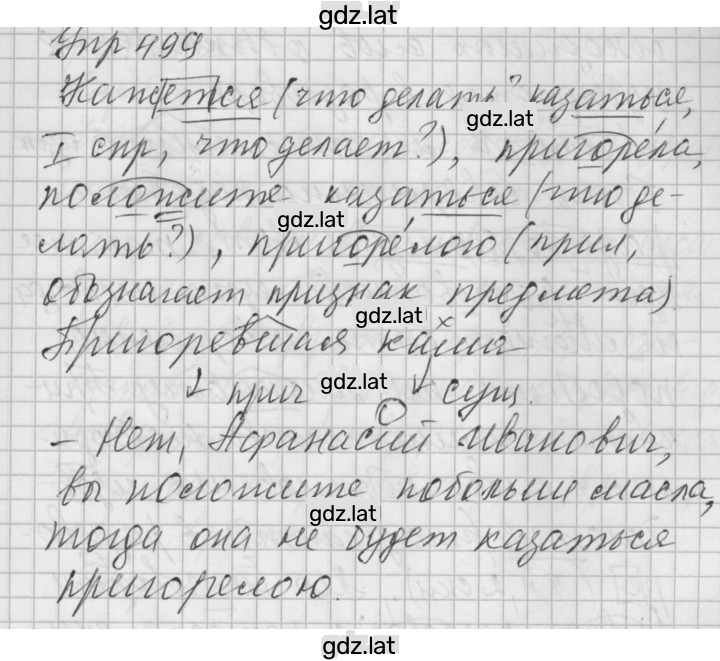 gdz.lat
Упр 499
Кажется (что делать? казаться,
gdz.lat
I спр, что делает?), пригоре́ла,
положите казаться (что де-
gdz.lat
лать?), пригоре́лою (прил,
обозначает признак предмета)
gdz.lat
Пригоревшая каша
gdz.lat
прич сущ.
- Нет, Афанасий Иванович,
вы положите побольше масла,
gdz.lat
тогда она не будет казаться
пригорелою.
gdz.lat